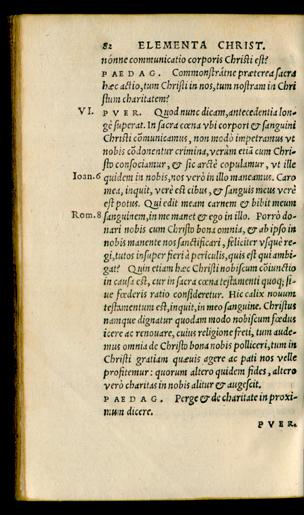 82 ELEMENTA CHRIST.
nónne communicatio corporis Christi est?
PAEDAG. Commonstrátne præterea sacra
hæc actio, tum Christi in nos, tum nostram in Chri
stum charitatem?
VI. PVER. Quod nunc dicam, antecedentia lon-
gè superat. In sacra cœna vbi corpori & sanguini
Christi cōmunicamus, non modò impetramus vt
nobis cōdonentur crimina, verùm etiā cum Chri-
sto consociamur, & sic arctè copulamur, vt ille
Ioan.6 quidem in nobis, nos verò in illo maneamus. Caro
mea, inquit, verè est cibus, & sanguis meus verè
est potus. Qui edit meam carnem & bibit meum
Rom.8 sanguinem, in me manet & ego in illo. Porrò do-
nari nobis cum Christo bona omnia, & ab ipso in
nobis manente nos sanctificari, feliciter vsque re-
gi, tutos insuper fieri à periculis, quis est qui ambi-
gat? Quin etiam hæc Christi nobiscum cōiunctio
in causa est, cur in sacra cœna testamenti quoq; si-
ue fœderis ratio consideretur. Hic calix nouum
testamentum est, inquit, in meo sanguine. Christus
namque dignatur quodam modo nobiscum fœdus
icere ac renouare, cuius religione freti, tum aude-
mus omnia de Christo bona nobis polliceri, tum in
Christi gratiam quæuis agere ac pati nos velle
profitemur: quorum altero quidem fides, altero
verò charitas in nobis alitur & augescit.
PAEDAG. Perge & de charitate in proxi-
mum dicere.
PVER.